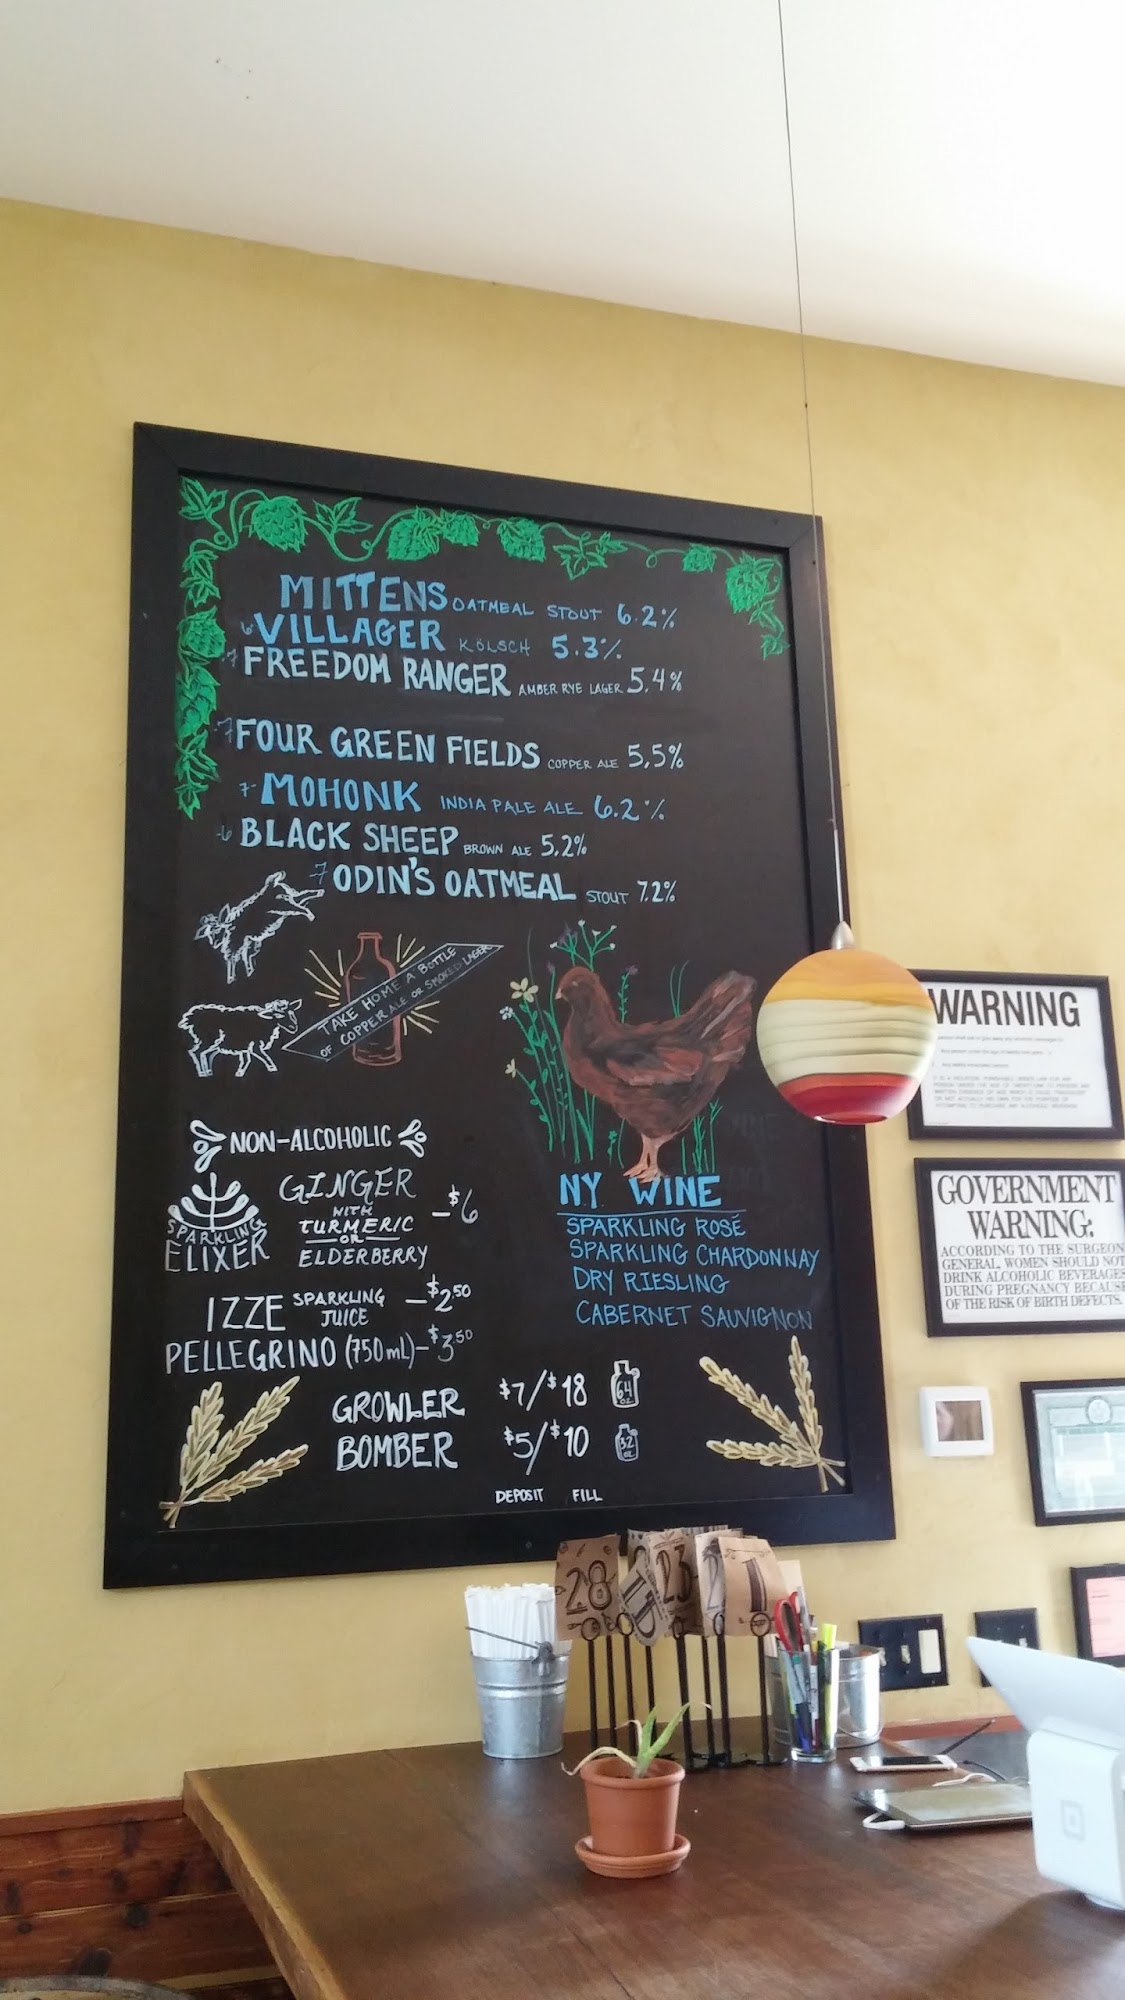 MITTENS OATMEAL STOUT 6.2%
6 VILLAGER KÖLSCH 5.3%
7 FREEDOM RANGER AMBER RYE LAGER 5.4%
7 FOUR GREEN FIELDS COPPER ALE 5.5%
7- MOHONK INDIA PALE ALE 6.2%
-6 BLACK SHEEP BROWN ALE 5.2%
7 ODIN'S OATMEAL STOUT 7.2%
TAKE HOME A BOTTLE
OF COPPER ALE OR SMOKED LAGER
NON-ALCOHOLIC
SPARKLING
ELIXER
GINGER
WITH
TURMERIC
OR
ELDERBERRY
—$6
IZZE SPARKLING JUICE —$2.50
PELLEGRINO (750mL)—$3.50
N.Y. WINE
SPARKLING ROSÉ
SPARKLING CHARDONNAY
DRY RIESLING
CABERNET SAUVIGNON
GROWLER $7/$18 64 oz
BOMBER $5/$10 32 oz
DEPOSIT FILL
WARNING
GOVERNMENT
WARNING:
ACCORDING TO THE SURGEON
GENERAL, WOMEN SHOULD NOT
DRINK ALCOHOLIC BEVERAGES
DURING PREGNANCY BECAUSE
OF THE RISK OF BIRTH DEFECTS.
28
23
21